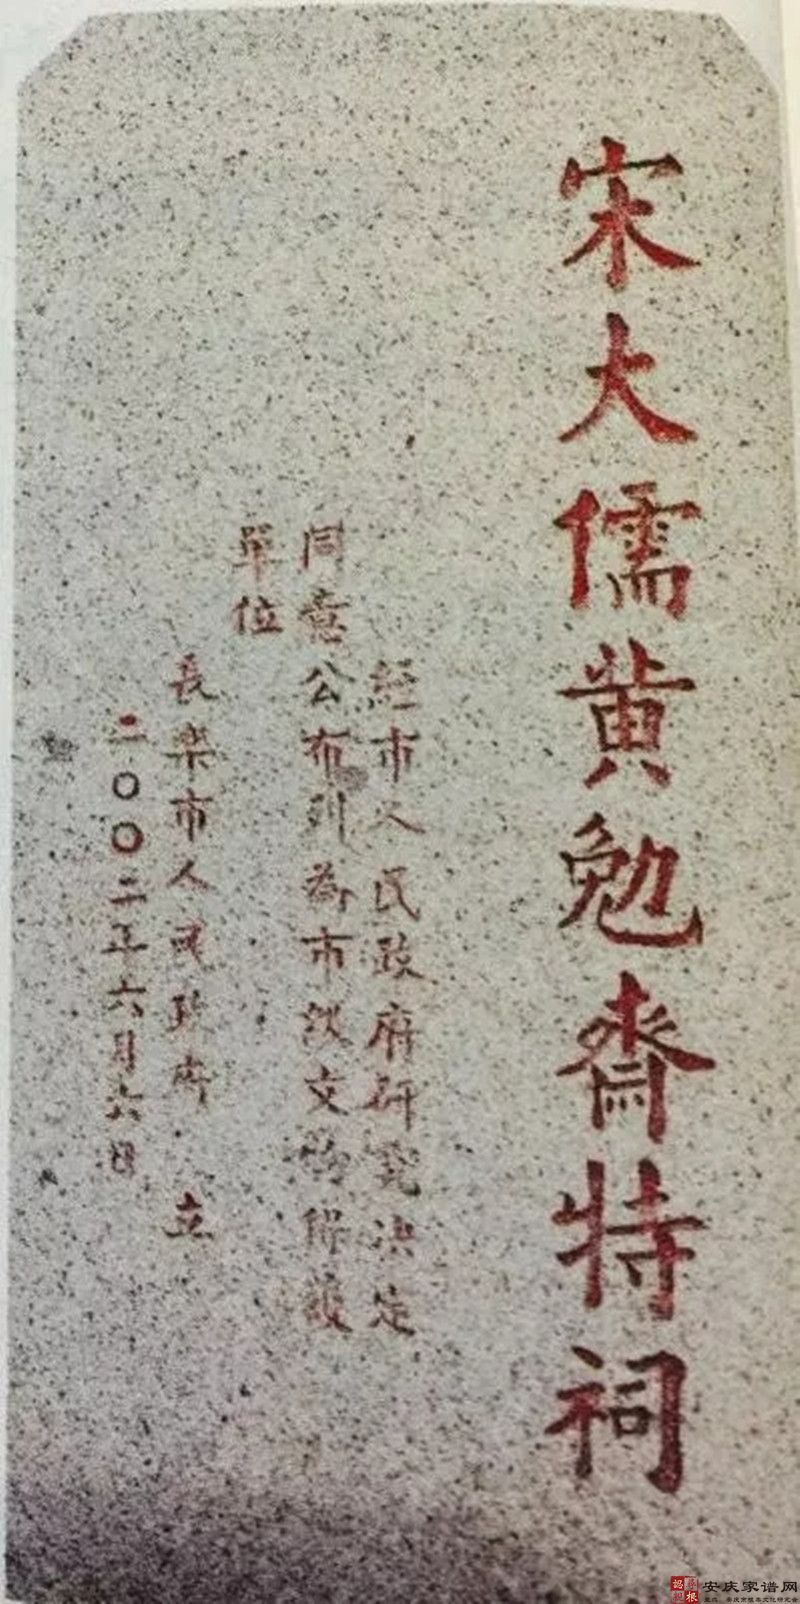 宋大儒黄勉齋特祠
經市人民政府研究决定
同意公布列為市级文物保護
單位
長樂市人民政府 立
二〇〇二年六月六日
安庆家谱网